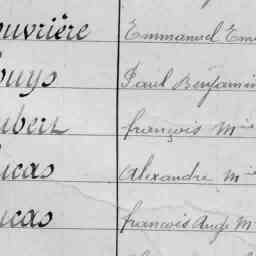 ouvrière Emmanuel Em
ouys Paul Benjamin
ubert françois M ie
ucas Alexandre M ie
ucas francois Ange M